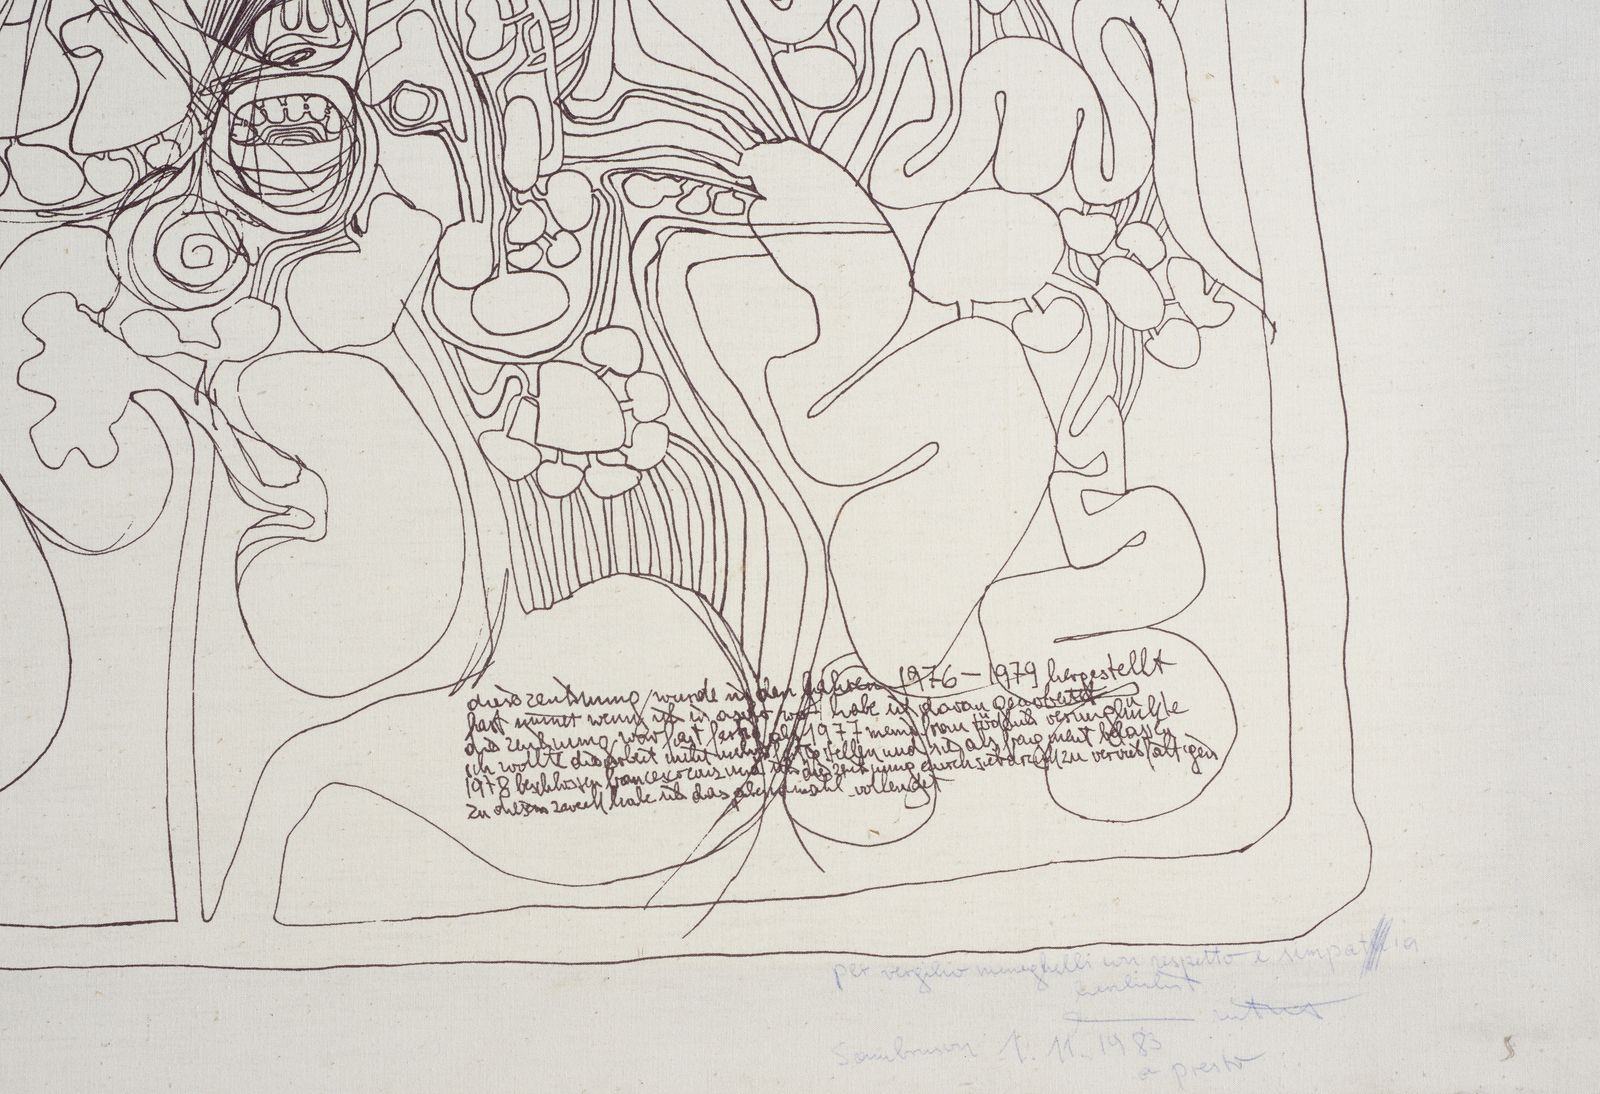 diese zeichnung wurde in den jahren 1976–1979 hergestellt
fast immer wenn ich in asolo war habe ich daran gearbeitet
die zeichnung war fast fertig als 1977 mein tödlich verunglückte
ich wollte die arbeit nicht mehr fertigstellen und sie als fragment belassen
1978 beschlossen francesco conz und ich die zeichnung durch siebdruck zu vervielfältigen
zu diesem zweck habe ich das abendmahl vollendet
per vergilio meneghelli con rispetto e simpatia
herzlichst
nitsch
Sambruson 1. 11. 1983
a presto
S